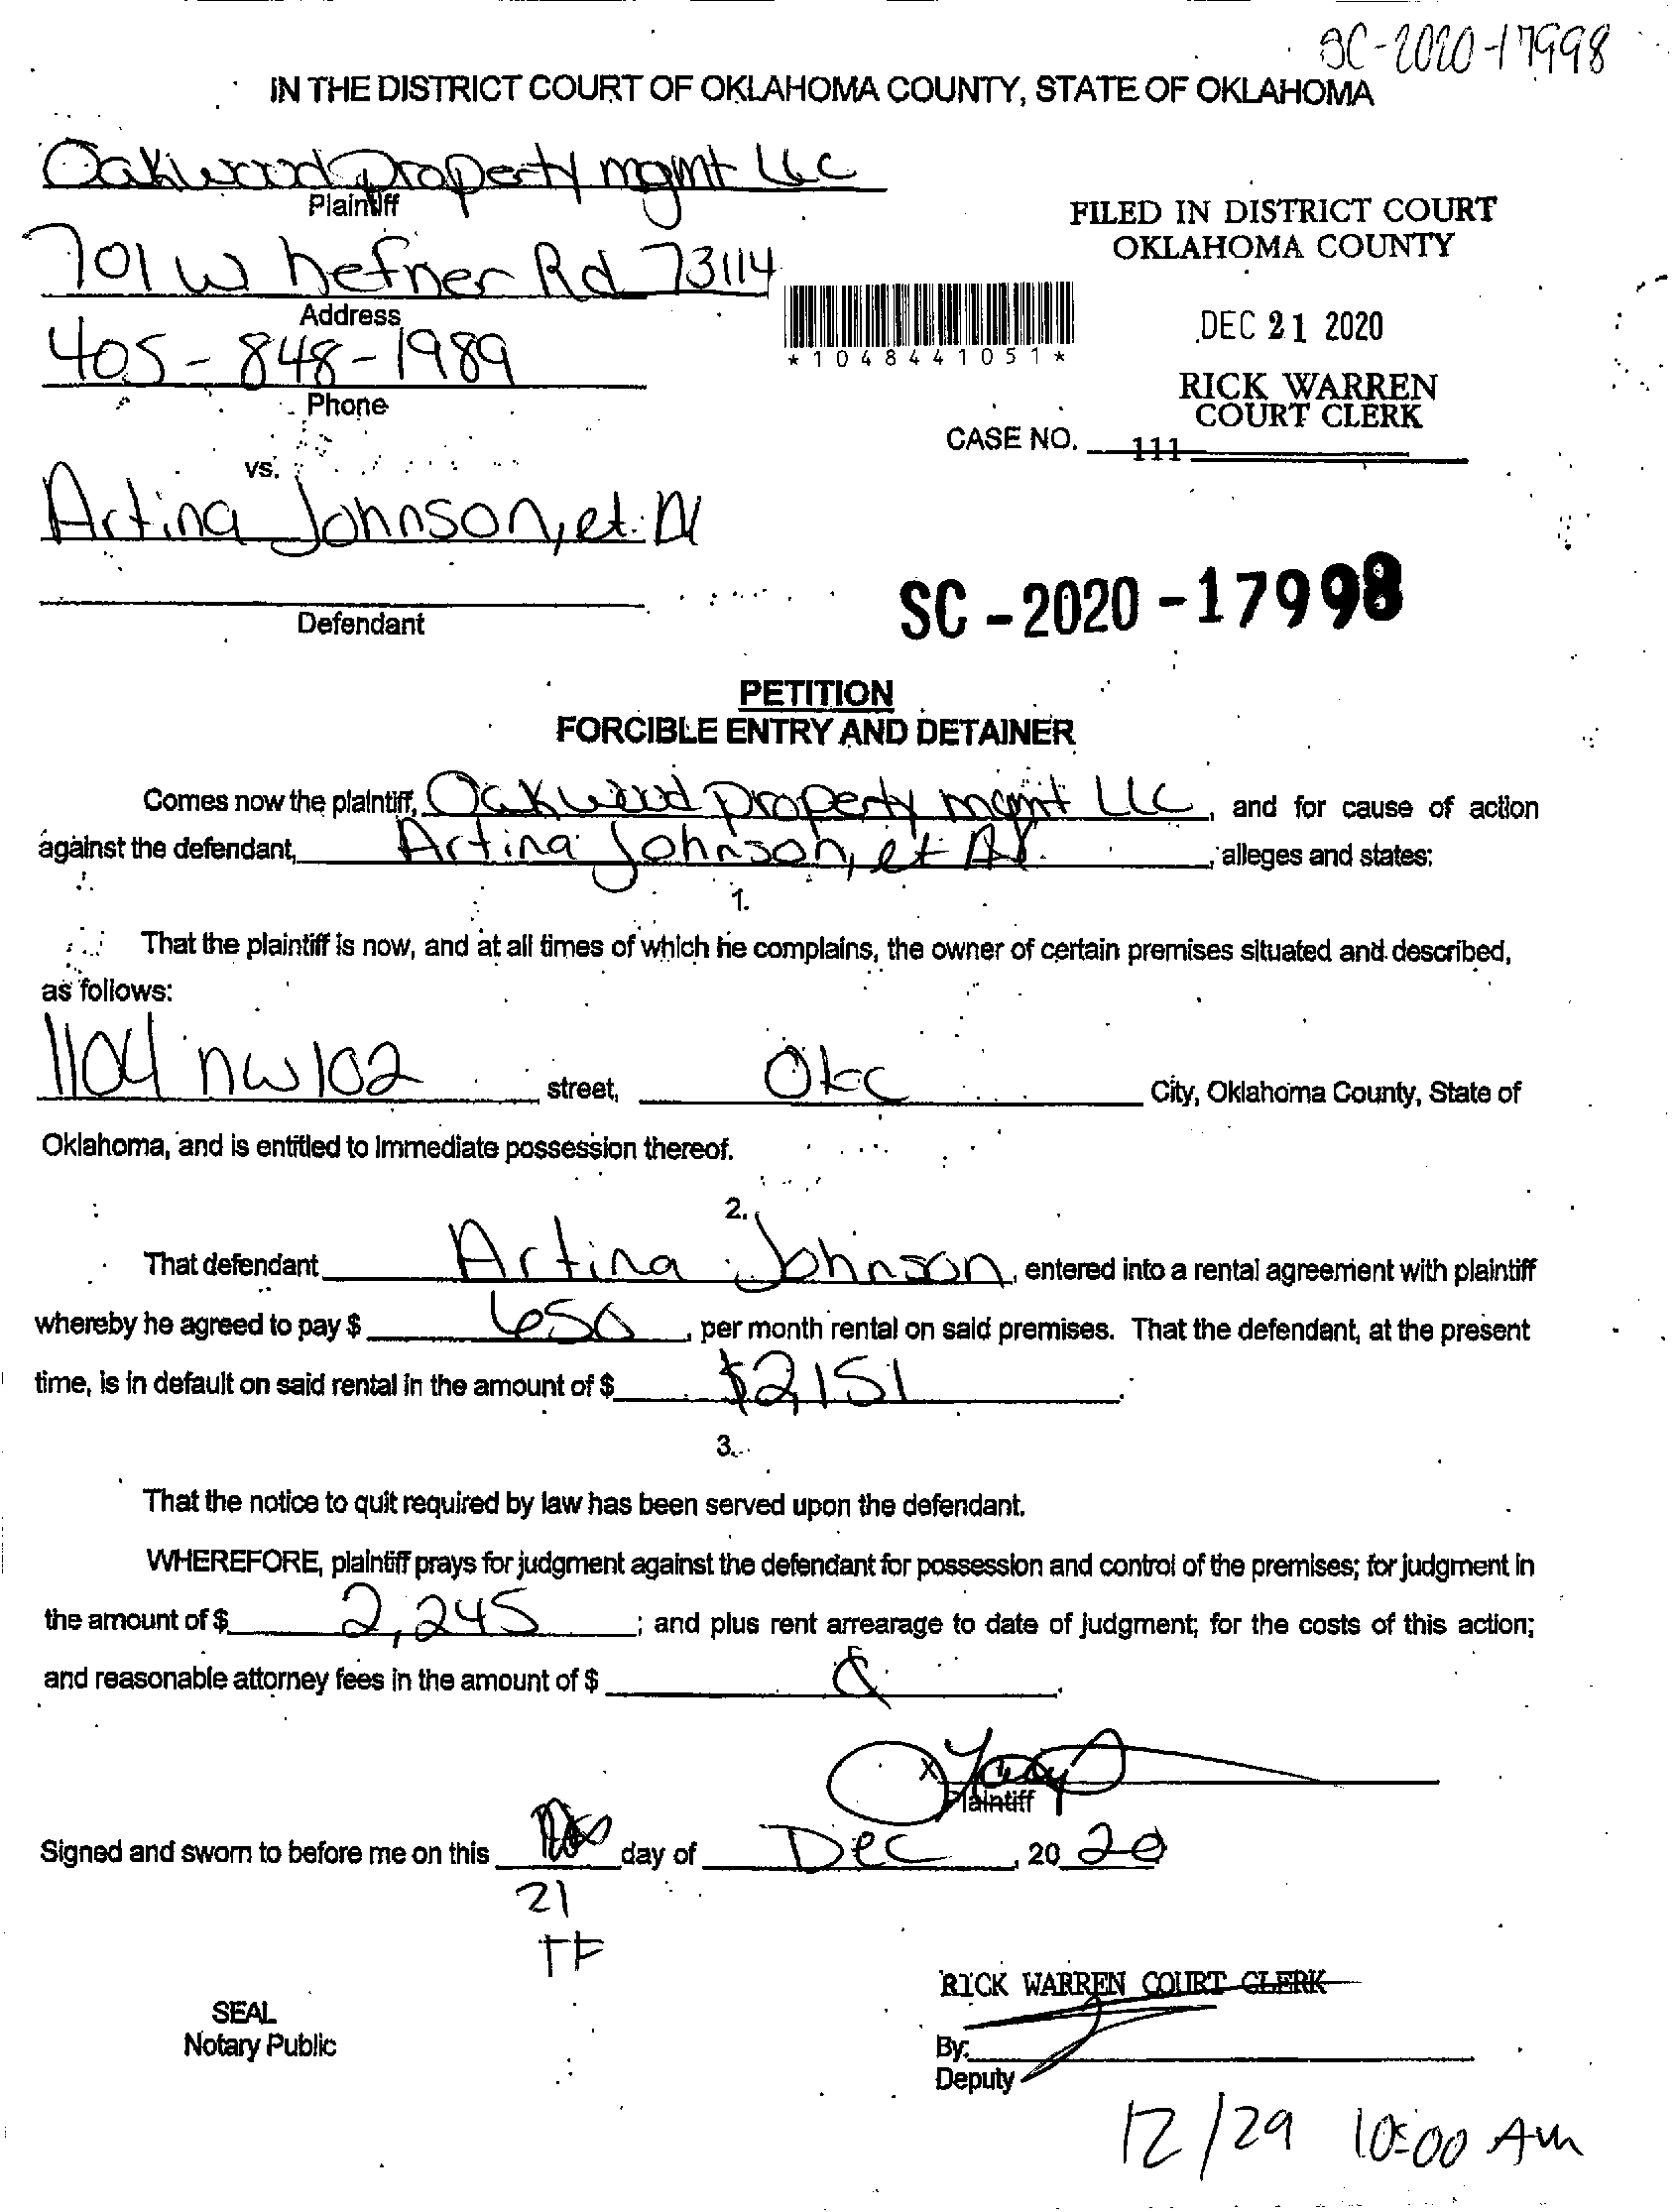 SC-2020-17998
IN THE DISTRICT COURT OF OKLAHOMA COUNTY, STATE OF OKLAHOMA
Oakwood Property mgmt LLC
Plaintiff
701 W hefner Rd 73114
Address
405-848-1989
Phone
FILED IN DISTRICT COURT
OKLAHOMA COUNTY
*1048441051*
DEC 21 2020
RICK WARREN
COURT CLERK
CASE NO. 111
vs.
Artina Johnson, et. Al
Defendant
SC-2020-17998
PETITION
FORCIBLE ENTRY AND DETAINER
Comes now the plaintiff, Oakwood Property mgmt LLC, and for cause of action
against the defendant, Artina Johnson, et Al., alleges and states:
1.
That the plaintiff is now, and at all times of which he complains, the owner of certain premises situated and described,
as follows:
1104 nw 102 street, Okc City, Oklahoma County, State of
Oklahoma, and is entitled to immediate possession thereof.
2.
That defendant Artina Johnson, entered into a rental agreement with plaintiff
whereby he agreed to pay $ 650, per month rental on said premises. That the defendant, at the present
time, is in default on said rental in the amount of $ $2,151.
3.
That the notice to quit required by law has been served upon the defendant.
WHEREFORE, plaintiff prays for judgment against the defendant for possession and control of the premises; for judgment in
the amount of $ 2,245; and plus rent arrearage to date of judgment; for the costs of this action;
and reasonable attorney fees in the amount of $
X
Plaintiff
Signed and sworn to before me on this day of Dec, 20 20
21
TF
RICK WARREN COURT CLERK
SEAL
Notary Public
By:
Deputy
12/29 10:00 Am